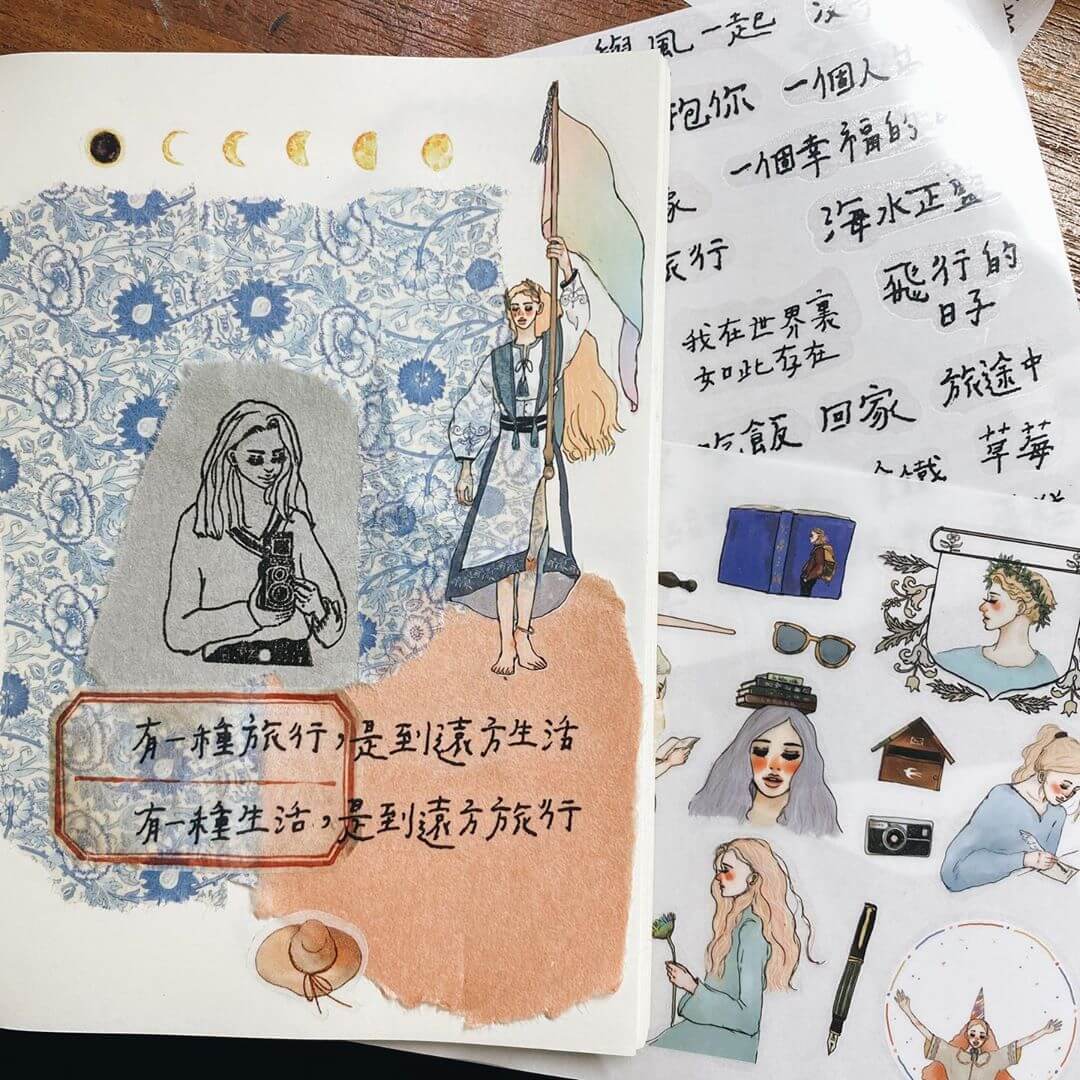 有一種旅行，是到遠方生活
有一種生活，是到遠方旅行
與風一起
抱你
一個人
一個幸福的
家
海水正藍
旅行
飛行的
日子
我在世界裏
如此存在
吃飯
回家
旅途中
草莓